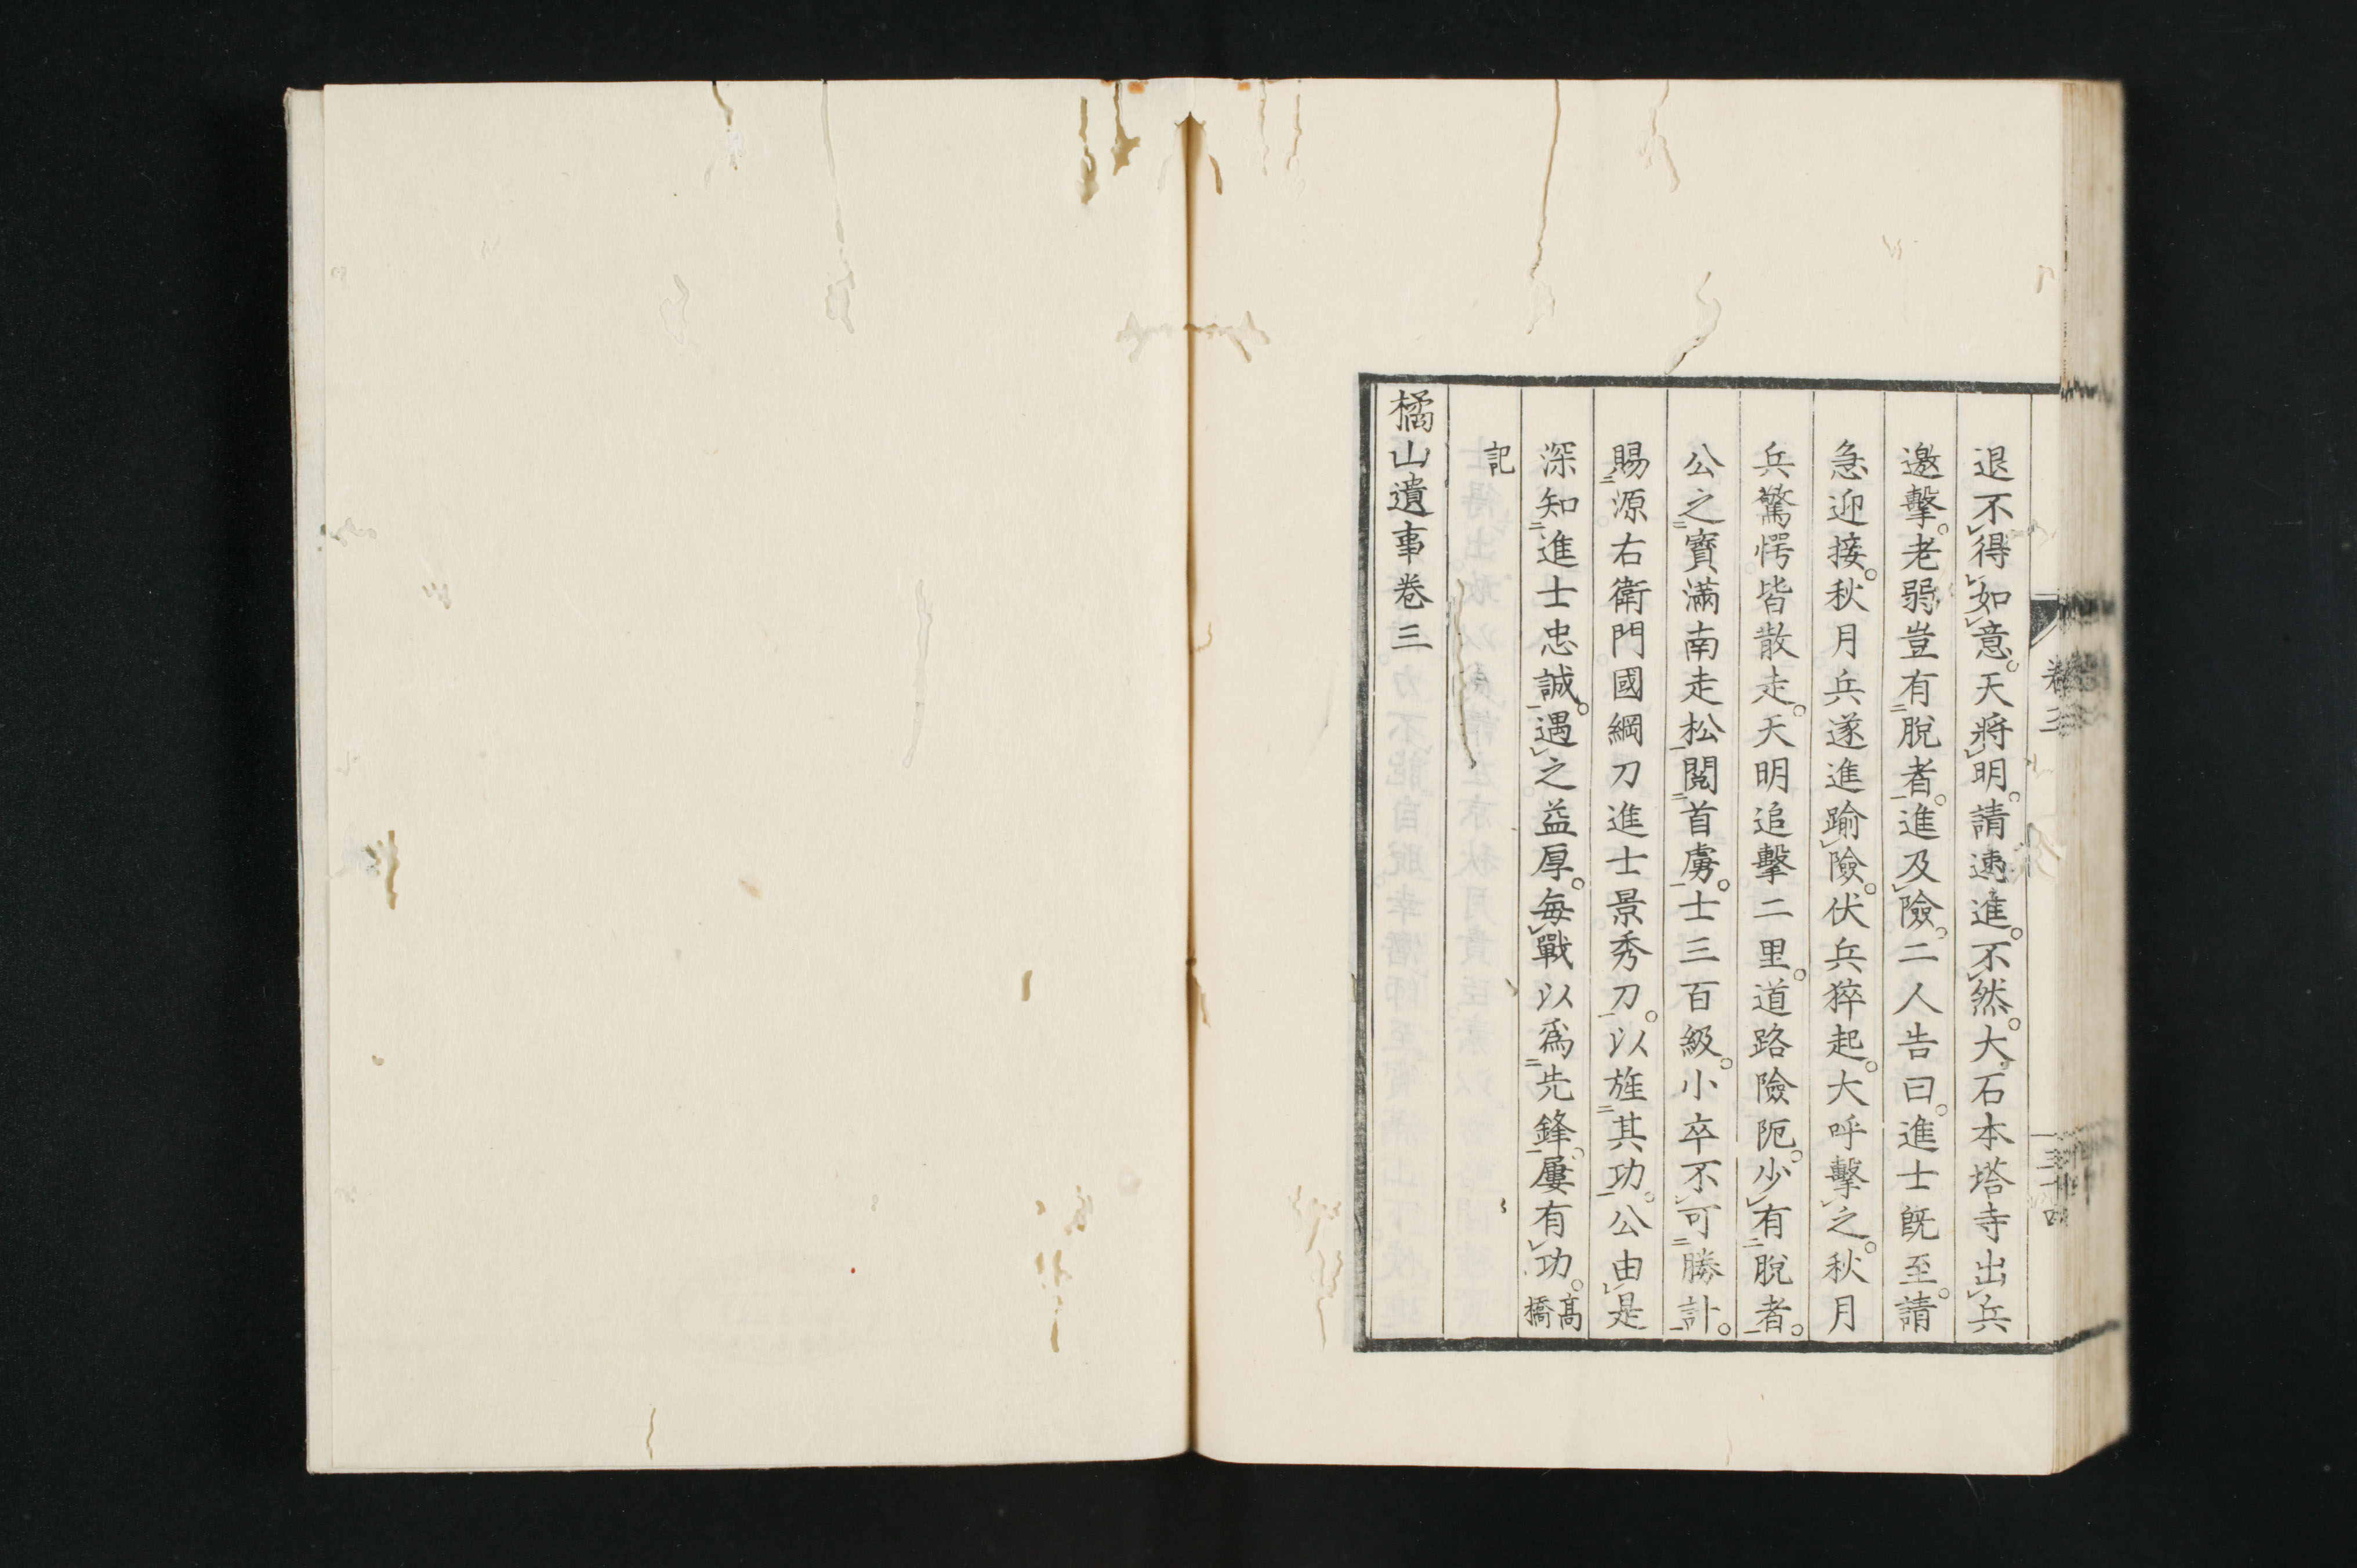 退不得如意。天將明。請速進。不然。大石本塔寺出兵
邀擊。老弱豈有脫者。進及險。二人告曰。進士既至。請
急迎接。秋月兵遂進踰險。伏兵猝起。大呼擊之。秋月
兵驚愕皆散走。天明追擊二里。道路險阨。少有脫者。
公之寶滿南走松閲首虜。士三百級。小卒不可勝計。
賜源右衛門國綱刀進士景秀刀。以旌其功。公由是
深知進士忠誠。遇之益厚。每戰以爲先鋒。屢有功。高橋
記
橘山遺事卷三
卷三
三十四